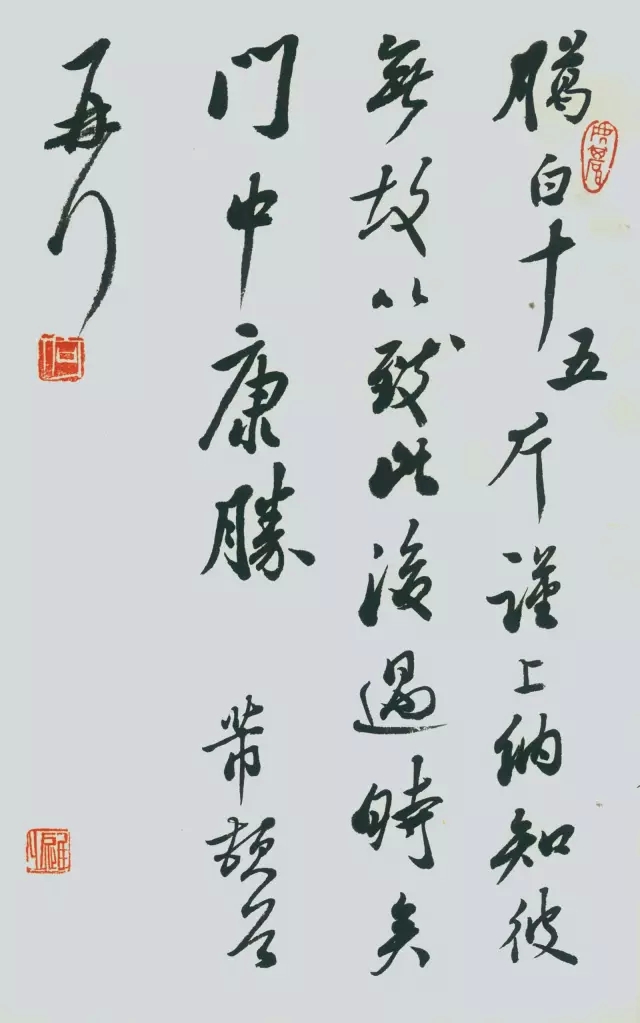 臈白十五斤謹上納知彼
無故以致此後遇時矣
門中康勝 芾頓首
再行